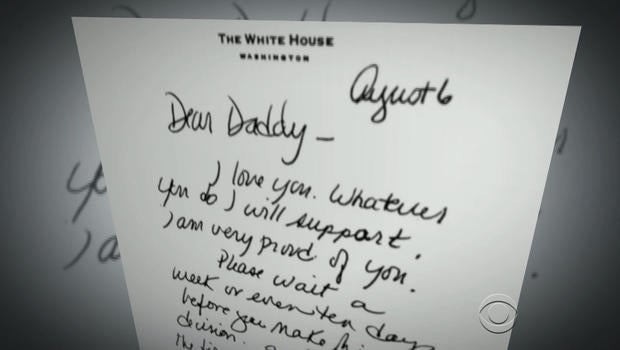 THE WHITE HOUSE
WASHINGTON
August 6
Dear Daddy –
I love you. Whatever
you do I will support.
I am very proud of you.
Please wait a
week or even ten days
before you make this
decision.